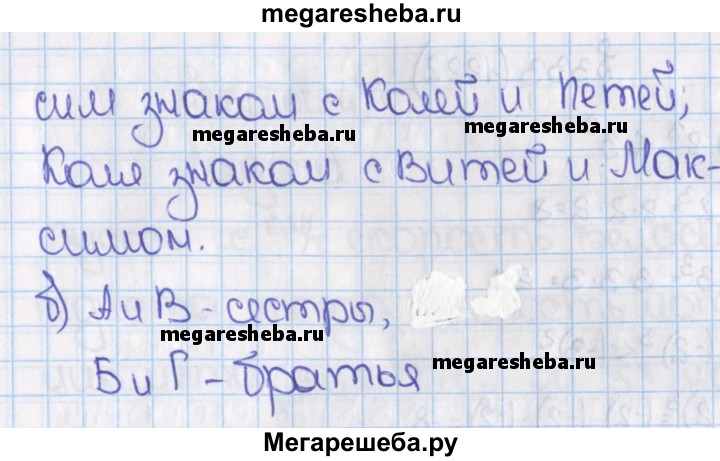 megaresheba.ru
сим знаком с Колей и Петей;
megaresheba.ru megaresheba.ru
Коля знаком с Витей и Мак-
симом.
б) А и В - сестры,
megaresheba.ru
megaresheba.ru
Б и Г - братья
Мегарешеба.ру